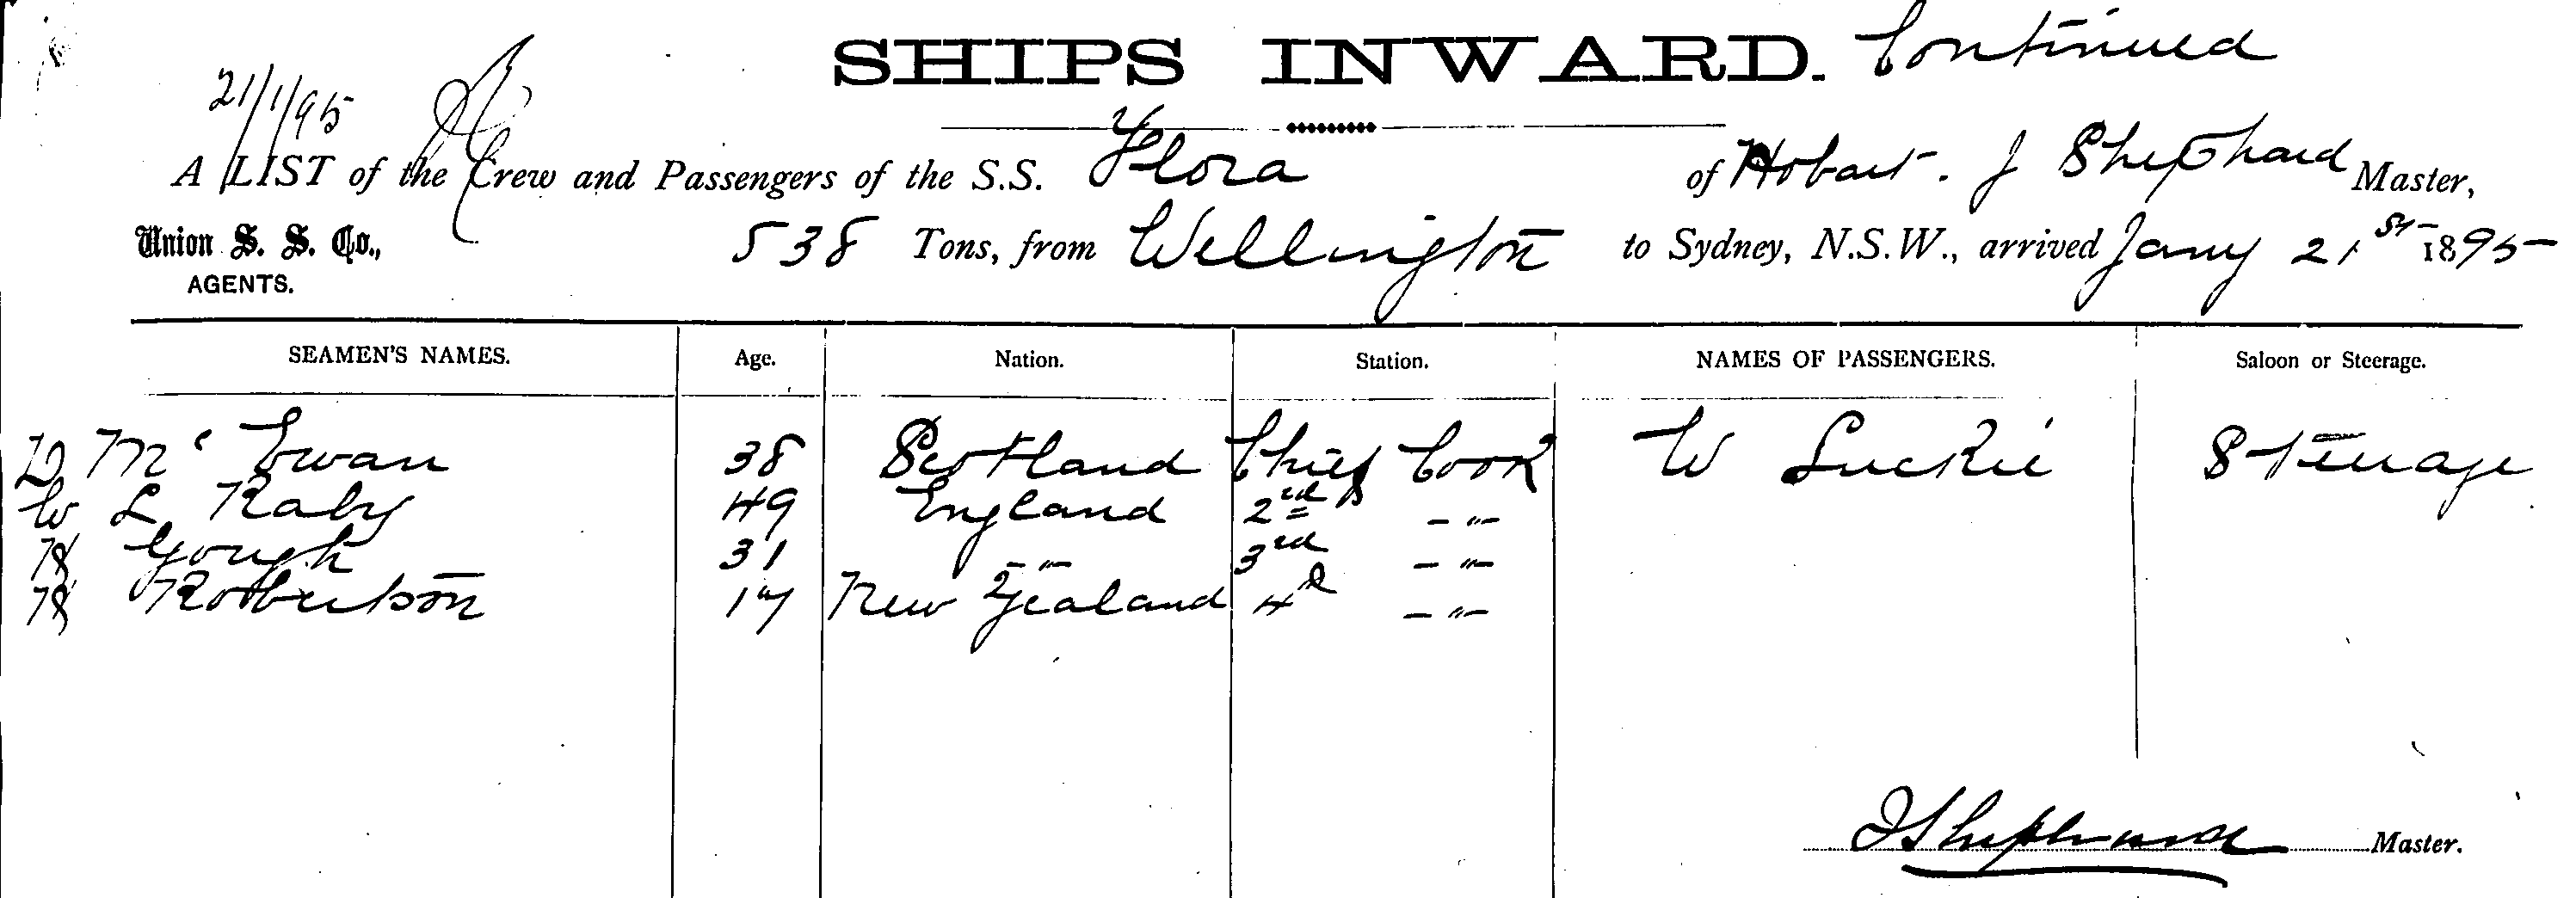 SHIPS INWARD. Continued
21/1/95
A LIST of the Crew and Passengers of the S.S. Flora of Hobart. J Shephard Master,
Union S. S. Co., 538 Tons, from Wellington to Sydney, N.S.W., arrived Jany 21st 1895
AGENTS.
SEAMEN'S NAMES. Age. Nation. Station. NAMES OF PASSENGERS. Saloon or Steerage.
D McEwan 38 Scotland Chief Cook W Luckie Steerage
W L Raby 49 England 2nd - " -
Gough 31 - " - 3rd - " -
Robertson 17 New Zealand 4th - " -
J Shephard Master.